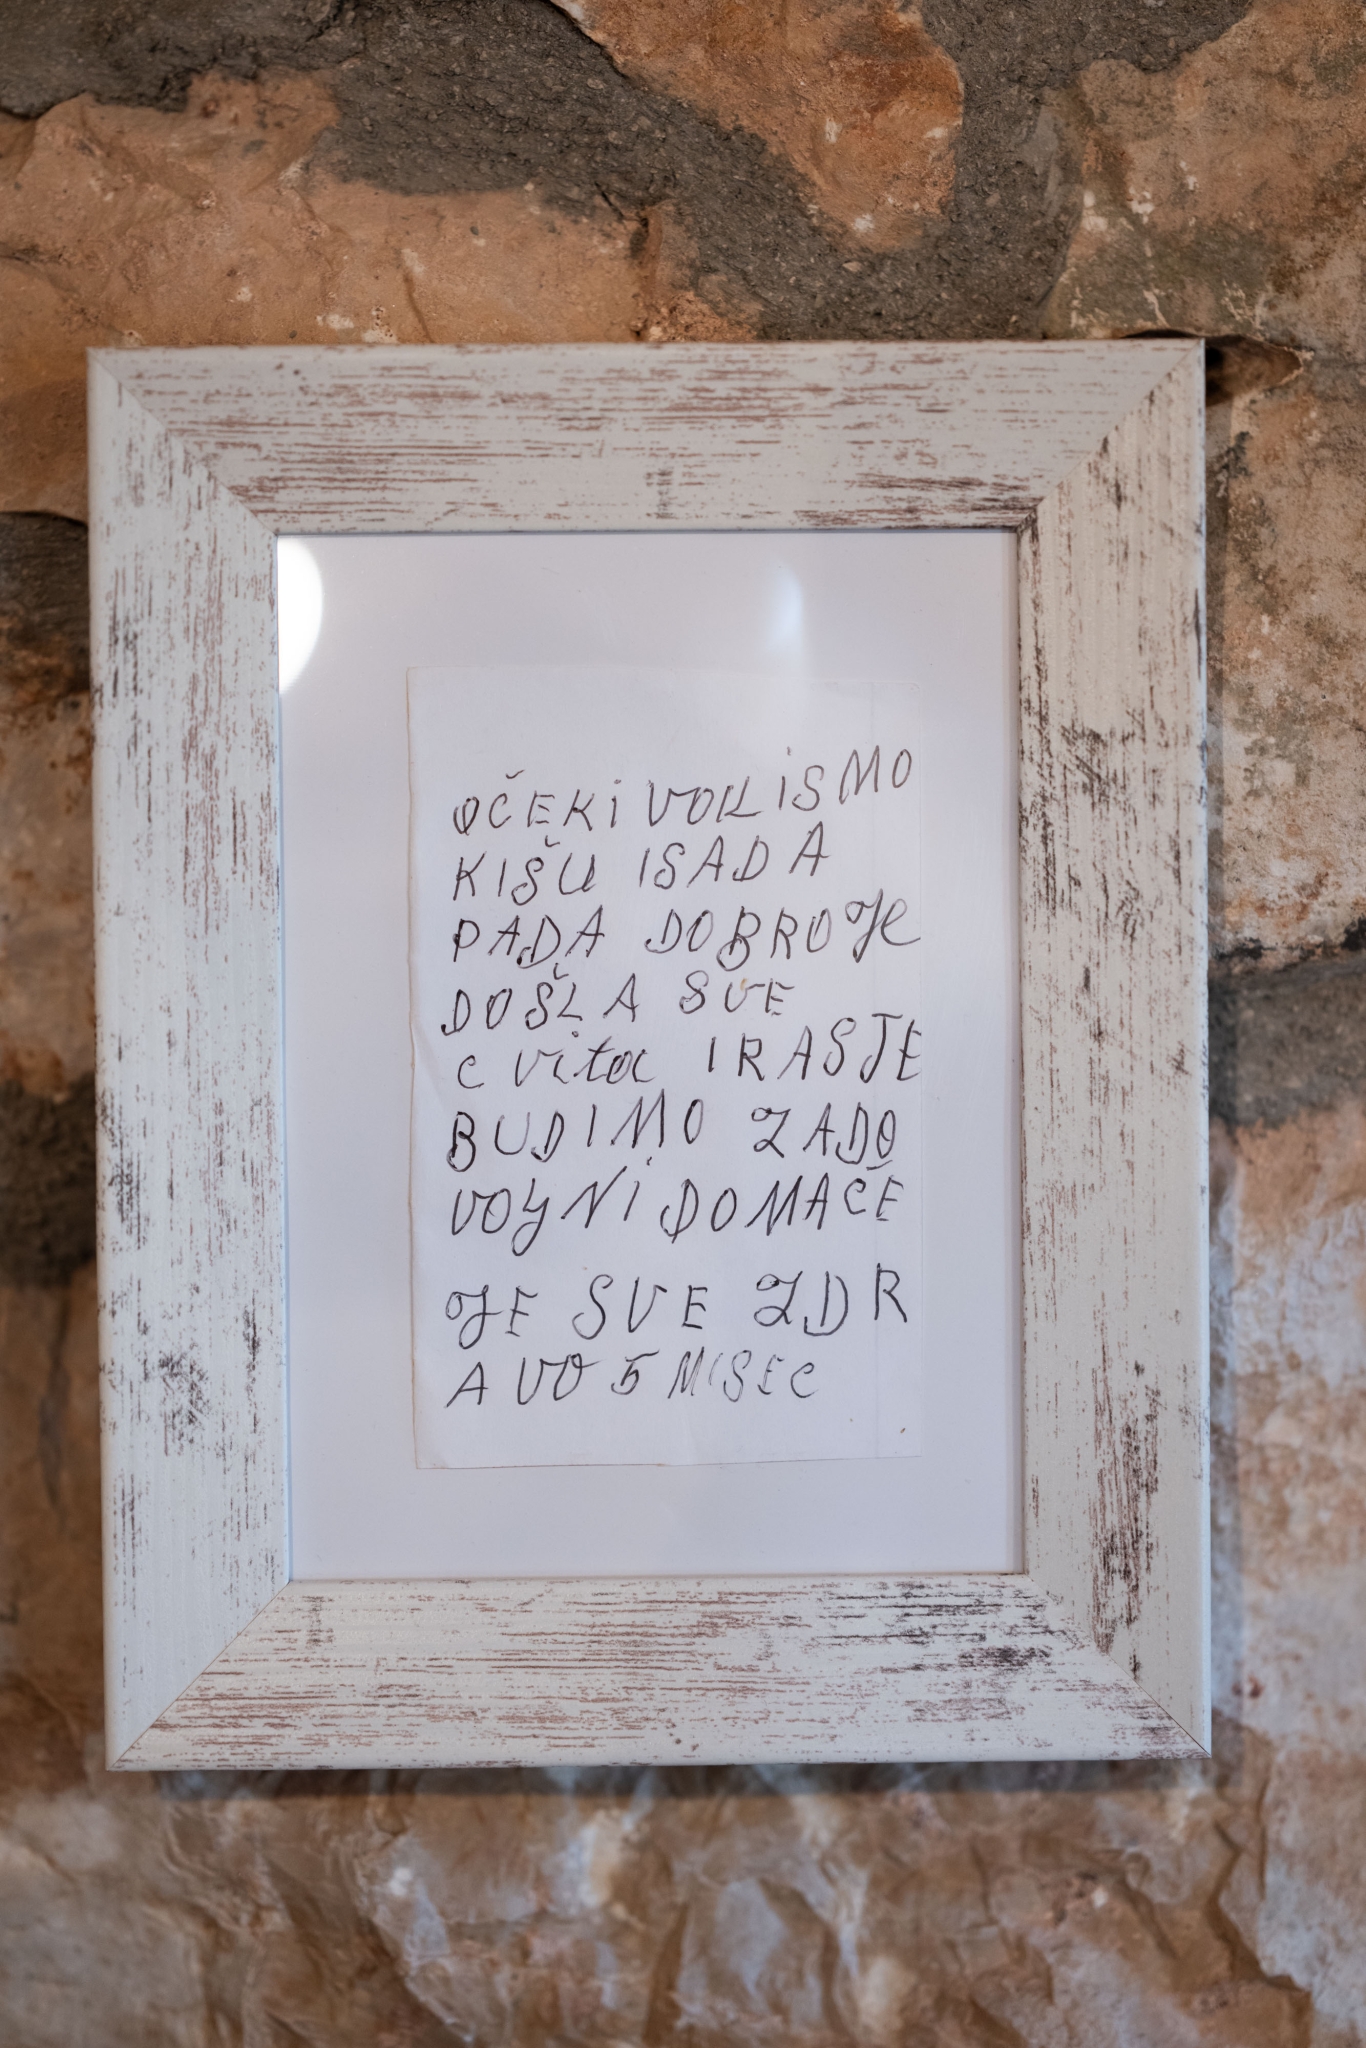 OČEKiVOLiSMO
KIŠU ISADA
PADA DOBROJE
DOŠLA SVE
cvita IRASTE
BUDIMO ZADO
VOYNi DOMAČE
JE SVE ZDR
AVO 5 MISEC